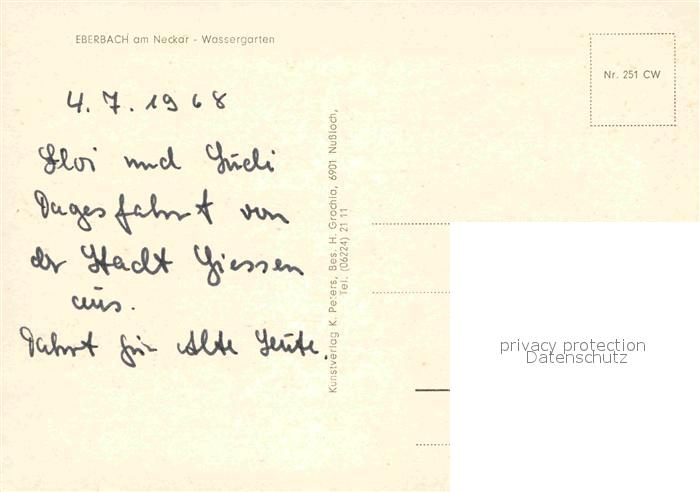 EBERBACH am Neckar - Wassergarten
Nr. 251 CW
4. 7. 1968
und
Dagesfahrt von
der Stadt Giessen
aus.
Fahrt für Alte Leute.
Kunstverlag K. Peters, Bes. H. Grochla, 6901 Nußloch,
Tel. (06224) 21 11
privacy protection
Datenschutz